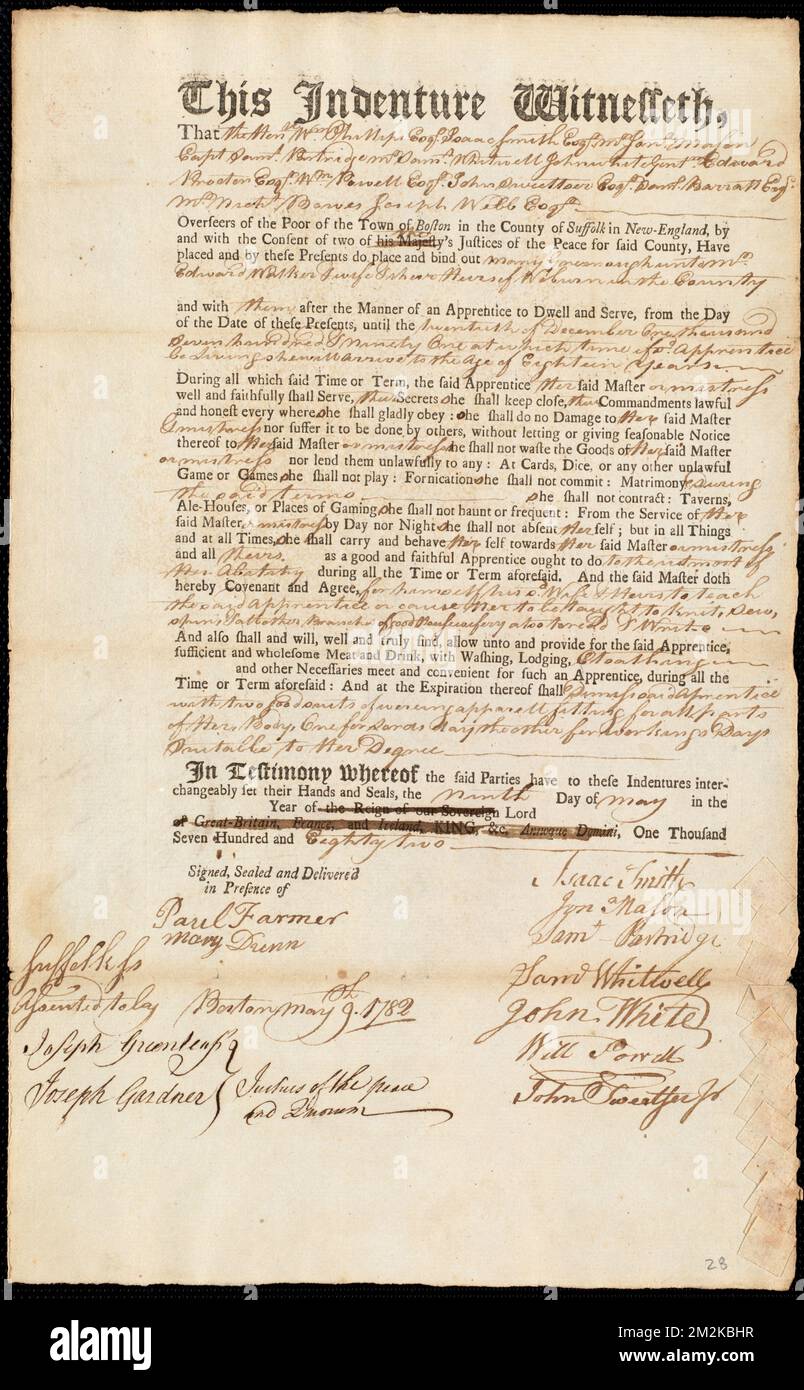 This Indenture Witnesseth,
That the Honl. Wm. Phillips Esqr. Isaac Smith Esqr. Mr. Jona. Mason
Capt Saml. Partridge Mr. Saml. Whitwell John White Gent Edward
Procter Esqr. Wm. Powell Esqr. John Sweetser Esqr. Saml. Barratt Esqr.
Mr. Nichs. Bowes Joseph Webb Esqr.
Overseers of the Poor of the Town of Boston in the County of Suffolk in New-England, by
and with the Consent of two of his Majesty's Justices of the Peace for said County, Have
placed and by these Presents do place and bind out Mary Greenough unto Mr.
Edward Walker & wife & their Heirs of Woburn in the County
and with them after the Manner of an Apprentice to Dwell and Serve, from the Day
of the Date of these Presents, until the twentieth of December One thousand
Seven hundred & ninety One at which time if sd. Apprentice
be living she will arrive to the Age of Eighteen Years
During all which said Time or Term, the said Apprentice Her said Master or mistress
well and faithfully shall Serve, their Secrets she shall keep close, their Commandments lawful
and honest every where she shall gladly obey : she shall do no Damage to Her said Master
& mistress nor suffer it to be done by others, without letting or giving seasonable Notice
thereof to Her said Master or mistress she shall not waste the Goods of Her said Master
or mistress nor lend them unlawfully to any : At Cards, Dice, or any other unlawful
Game or Games she shall not play : Fornication she shall not commit : Matrimony during
the said terms she shall not contract : Taverns,
Ale-Houses, or Places of Gaming she shall not haunt or frequent : From the Service of Her
said Master, or mistress by Day nor Night she shall not absent Her self ; but in all Things
and at all Times, she shall carry and behave Her self towards Her said Master or mistress
and all theirs as a good and faithful Apprentice ought to do to the utmost of
Her Abality during all the Time or Term aforesaid. And the said Master doth
hereby Covenant and Agree, for himself his sd. Wife & Heirs to teach
the said Apprentice or cause Her to be taught to knit, sew,
spin & other Branches of Good Housewifery also to read & Write
And also shall and will, well and truly find, allow unto and provide for the said Apprentice,
sufficient and wholesome Meat and Drink, with Washing, Lodging, Cloathing
and other Necessaries meet and convenient for such an Apprentice, during all the
Time or Term aforesaid : And at the Expiration thereof shall dismiss said Aprentice
with two Good suits of wereing apparell fitting for all parts
of Her Body, One for Lords days the other for workings Days
Suitable to Her Degree
In Testimony whereof the said Parties have to these Indentures inter-
changeably set their Hands and Seals, the ninth Day of May in the
Year of the Reign of our Sovereign Lord
of Great-Britain, France, and Ireland, KING, &c. Annoque Domini, One Thousand
Seven Hundred and Eighty two
Signed, Sealed and Delivered
in Presence of
Isaac Smith
Jona Mason
Paul Farmer
Mary Dunn
Saml Partridge
Suffolk Ss
Saml Whitwell
Assented to by Boston May 9th. 1782
John White
Joseph Greenleaf
Will Powell
Joseph Gardner } Justices of the peace
and Quorum
John Sweetser Jr
28
alamy
a
Image ID: 2M2KBHR
www.alamy.com